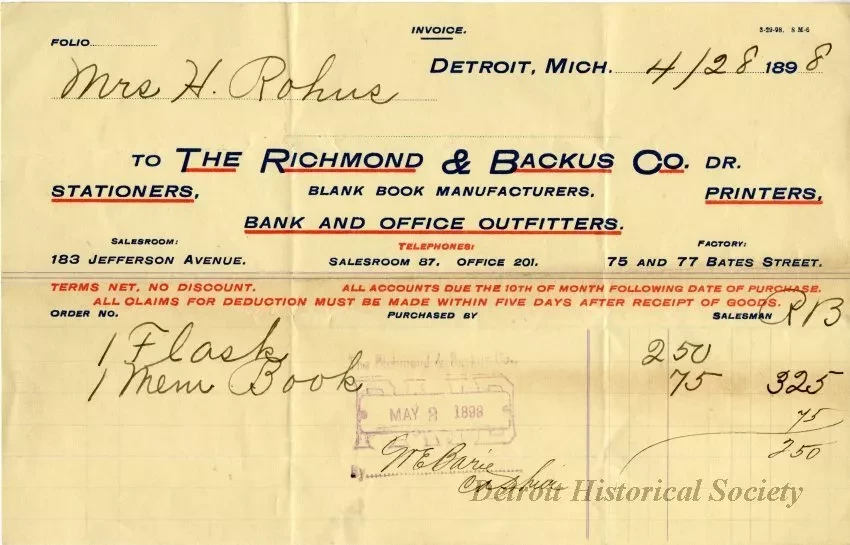 INVOICE.
3-29-98. 8 M-6
FOLIO
DETROIT, MICH. 4/28 1898
Mrs H. Rohns
TO THE RICHMOND & BACKUS CO. DR.
STATIONERS, BLANK BOOK MANUFACTURERS. PRINTERS,
BANK AND OFFICE OUTFITTERS.
SALESROOM: TELEPHONES: FACTORY:
183 JEFFERSON AVENUE. SALESROOM 87. OFFICE 201. 75 AND 77 BATES STREET.
TERMS NET, NO DISCOUNT. ALL ACCOUNTS DUE THE 10TH OF MONTH FOLLOWING DATE OF PURCHASE.
ALL CLAIMS FOR DEDUCTION MUST BE MADE WITHIN FIVE DAYS AFTER RECEIPT OF GOODS.
ORDER NO. PURCHASED BY SALESMAN RB
1 Flask 250
1 Mem Book 75 325
The Richmond & Backus Co.
75
MAY 3 1898
250
By W E Barie
Cashier
Detroit Historical Society